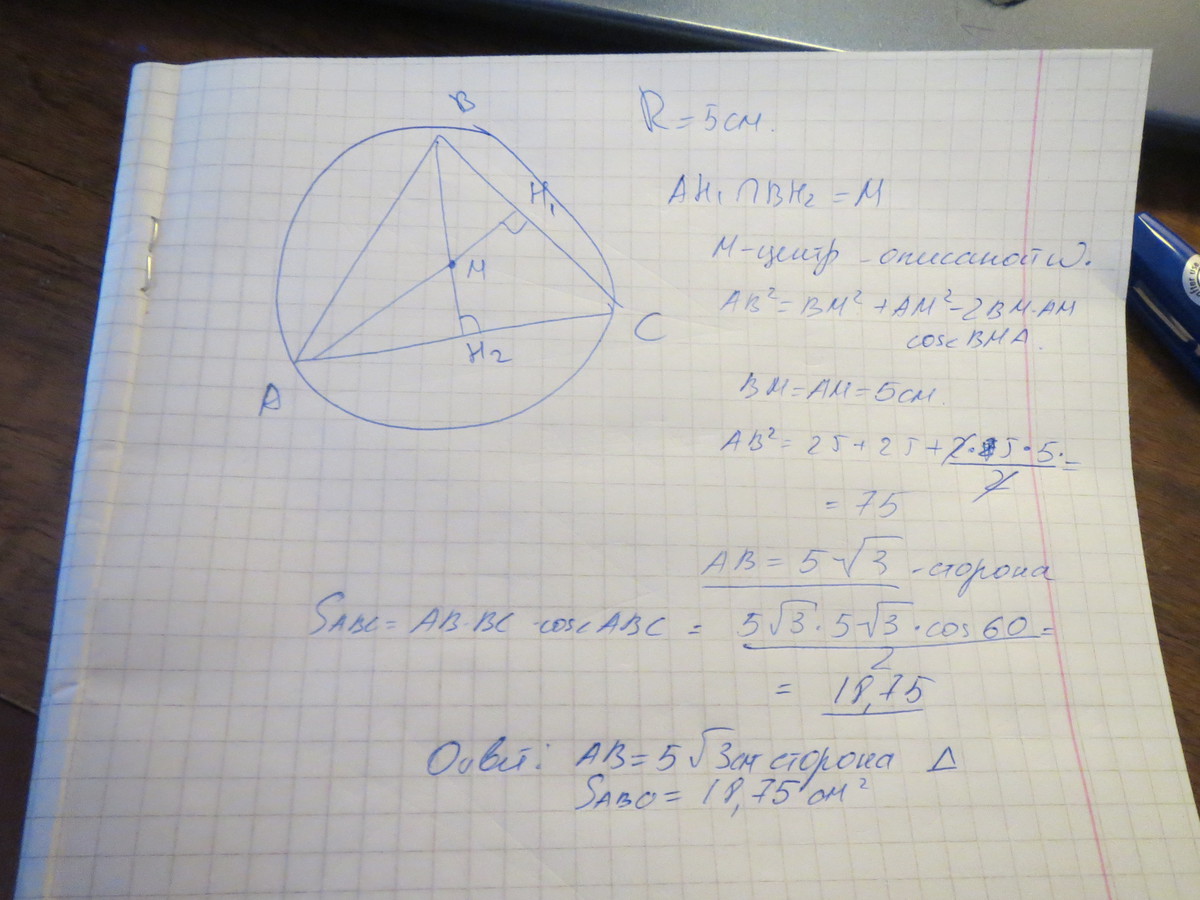 B
R = 5 см.
H₁
AH₁ ∩ BH₂ = M
M
M - центр - описаной ω.
AB² = BM² + AM² - 2BM·AM
cos< BMA.
C
H₂
A
BM = AM = 5 см.
AB² = 25 + 25 + 2·5·5· / 2 =
= 75
AB = 5√3 - сторона
SABC = AB·BC·cos< ABC = 5√3·5√3·cos 60 / 2 =
= 18,75
Ответ: AB = 5√3 см сторона Δ
SABC = 18,75 см²